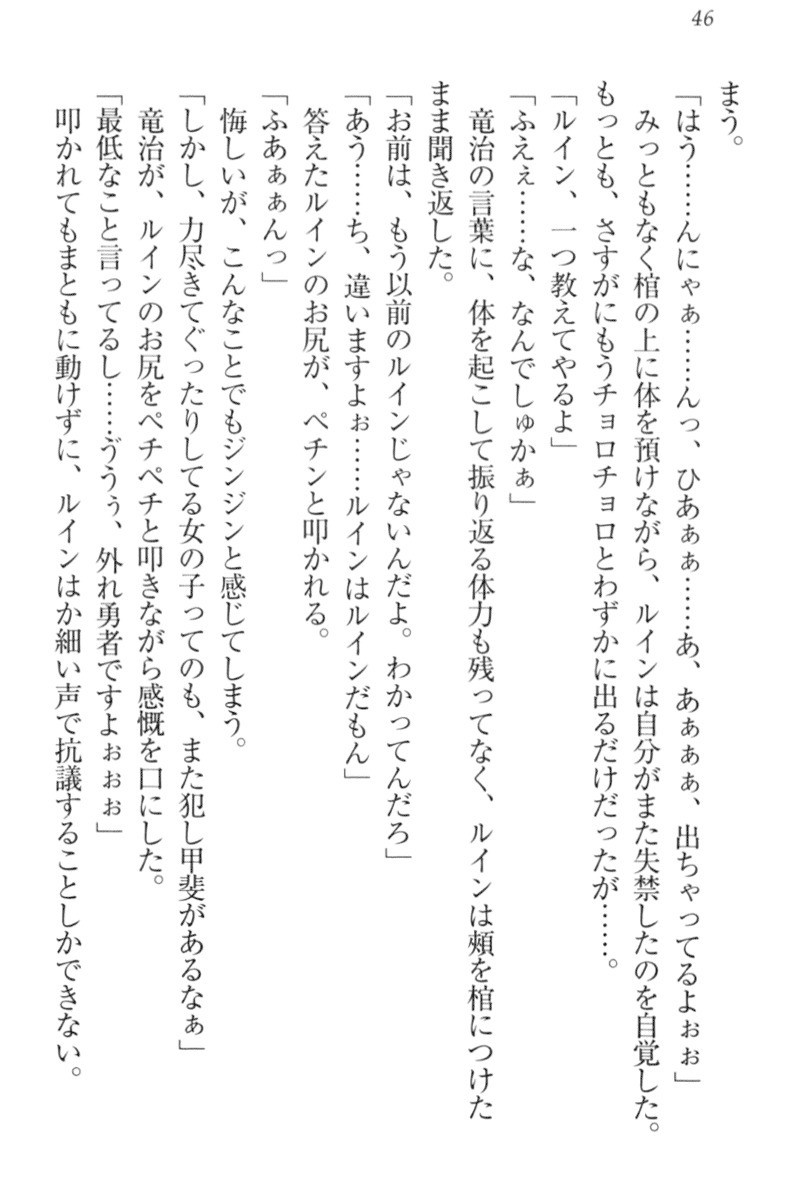 46
まう。
「はう……んにゃぁ……んっ、ひあぁぁ……あ、あぁぁぁ、出ちゃってるよぉぉ」
みっともなく棺の上に体を預けながら、ルインは自分がまた失禁したのを自覚した。
もっとも、さすがにもうチョロチョロとわずかに出るだけだったが……。
「ルイン、一つ教えてやるよ」
「ふえぇ……な、なんでしゅかぁ」
竜治の言葉に、体を起こして振り返る体力も残ってなく、ルインは頬を棺につけた
まま聞き返した。
「お前は、もう以前のルインじゃないんだよ。わかってんだろ」
「あう……ち、違いますよぉ……ルインはルインだもん」
答えたルインのお尻が、ペチンと叩かれる。
「ふあぁぁんっ」
悔しいが、こんなことでもジンジンと感じてしまう。
「しかし、力尽きてぐったりしてる女の子ってのも、また犯し甲斐があるなぁ」
竜治が、ルインのお尻をペチペチと叩きながら感慨を口にした。
「最低なこと言ってるし……ううぅ、外れ勇者ですよぉぉぉ」
叩かれてもまともに動けずに、ルインはか細い声で抗議することしかできない。